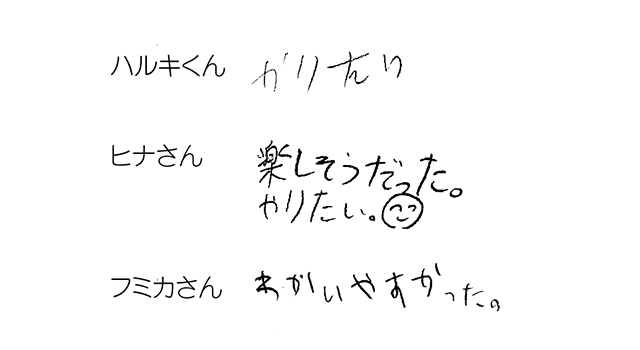 ハルキくん やりたい
ヒナさん 楽しそうだった。
やりたい。
フミカさん わかいやすかった。